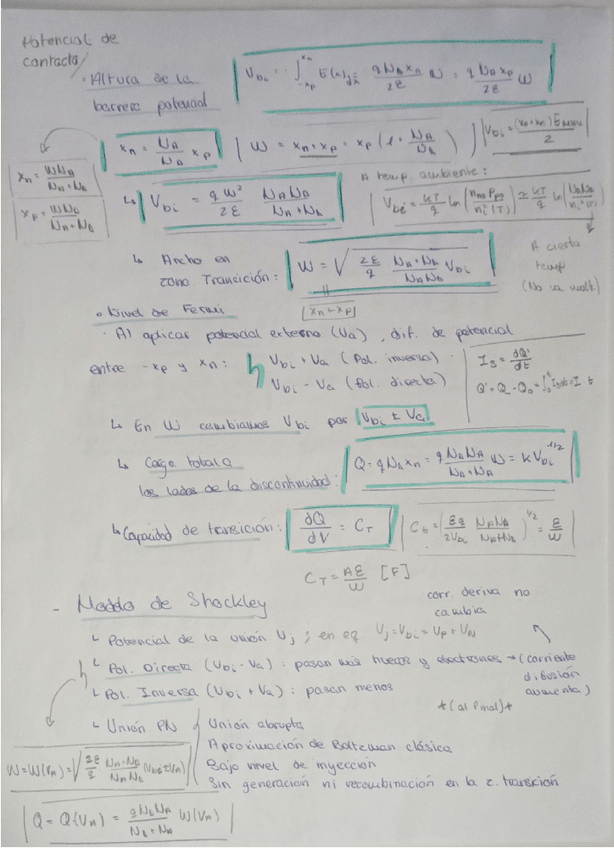 Potencial de
contacto
· Altura de la
barrera potencial
V_bi = - ∫_{-xp}^{xn} E(x) dx = q N_D x_n / 2ε W = q N_A x_p / 2ε W
x_n = N_A / N_D x_p | W = x_n + x_p = x_p (1 + N_A / N_D) | V_bi = (x_p + x_n) E / 2
x_n = W N_A / N_A + N_D
x_p = W N_D / N_A + N_D
A temp. ambiente:
↳ V_bi = q W² / 2ε N_A N_D / N_A + N_D | V_bi = kT / q ln (n_no p_po / n_i²(T)) ≃ kT / q ln (N_A N_D / n_i²(T))
A cierta
temp
(No va mult.)
↳ Ancho en
zona Transición: W = √ 2ε / q N_A + N_D / N_A N_D V_bi
|| x_n + x_p
· Nivel de Fermi
· Al aplicar potencial externo (Va), dif. de potencial
entre -xp y xn: V_bi + Va (Pol. inversa)
V_bi - Va (Pol. directa)
I_S = dQ / dt
↳ En W cambiamos V_bi por V_bi ± Va
↳ Carga total a
los lados de la discontinuidad: Q = q N_D x_n = q N_D N_A / N_D + N_A W = k V_bi^1/2
↳ Capacidad de transición: dQ / dV = C_T | = (εq / 2V_bi N_A N_D / N_A + N_D)^1/2 = ε / W
C_T = Aε / W [F]
- Modelo de Shockley
corr. deriva no
cambia
↳ Potencial de la unión Vj ; en eq Vj = V_bi = V_P + V_N
↳ Pol. Directa (V_bi - Va) : pasan más huecos y electrones → (corriente
difusión
aumenta)
↳ Pol. Inversa (V_bi + Va) : pasan menos
*(al final)*
↳ Unión PN Unión abrupta
Aproximación de Boltzman clásica
Bajo nivel de inyección
Sin generación ni recombinación en la z. transición
W = W(Va) = √ 2ε / q N_A + N_D / N_A N_D (V_bi ± Va)
Q = Q(Va) = q N_D N_A / N_D + N_A W(Va)